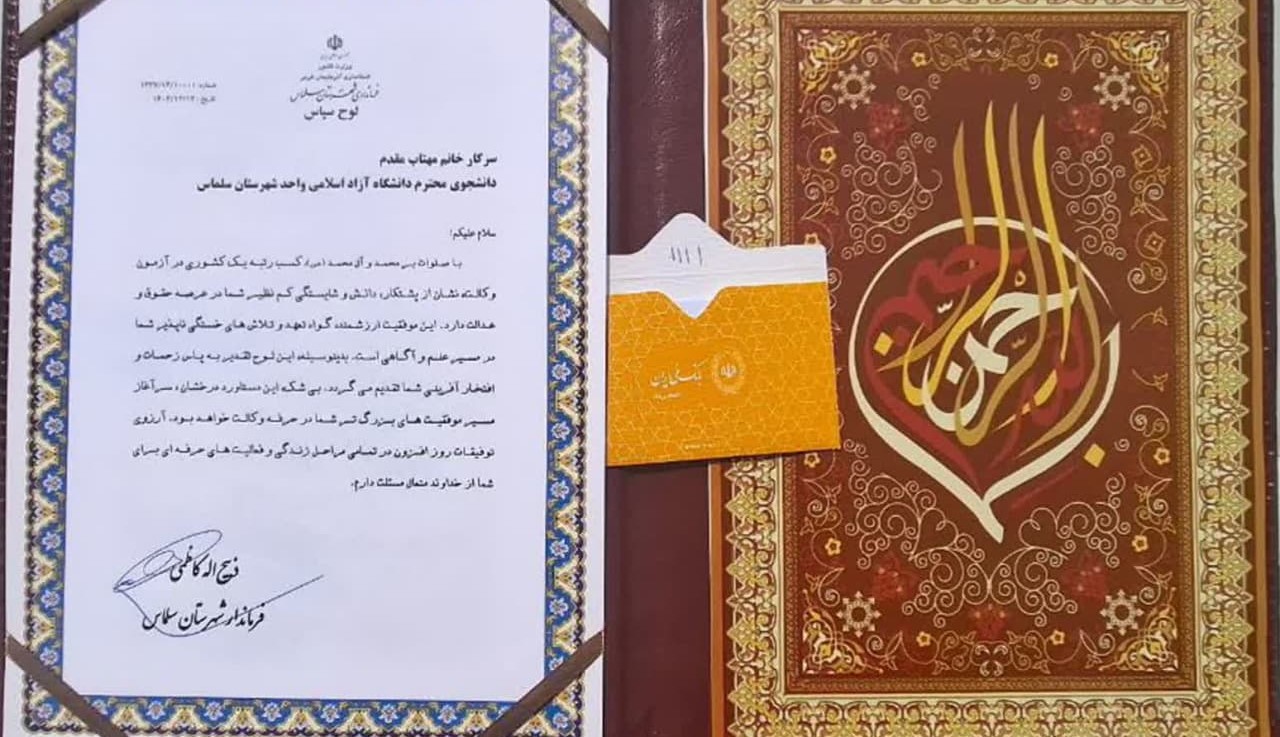 وزارت کشور
استانداری آذربایجان غربی
فرمانداری شهرستان سلماس
لوح سپاس
شماره:
تاریخ:
سرکار خانم مهتاب مقدم
دانشجوی محترم دانشگاه آزاد اسلامی واحد شهرستان سلماس
سلام علیکم؛
با صلوات بر محمد و آل محمد (ص)، کسب رتبه یک کشوری در آزمون
وکالت، نشان از پشتکار، دانش و شایستگی کم نظیر شما در عرصه حقوق و
عدالت دارد. این موفقیت ارزشمند، گواه تعهد و تلاش های خستگی ناپذیر شما
در مسیر علم و آگاهی است. بدینوسیله، این لوح تقدیر به پاس زحمات و
افتخار آفرینی شما تقدیم می گردد. بی شک، این دستاورد درخشان، سرآغاز
مسیر موفقیت های بزرگ تر شما در حرفه وکالت خواهد بود. آرزوی
توفیقات روز افزون در تمامی مراحل زندگی و فعالیت های حرفه ای برای
شما از خداوند متعال مسئلت دارم.
ذبیح اله کاظمی
فرماندار شهرستان سلماس
بانک ملی ایران
بسم الله الرحمن الرحیم